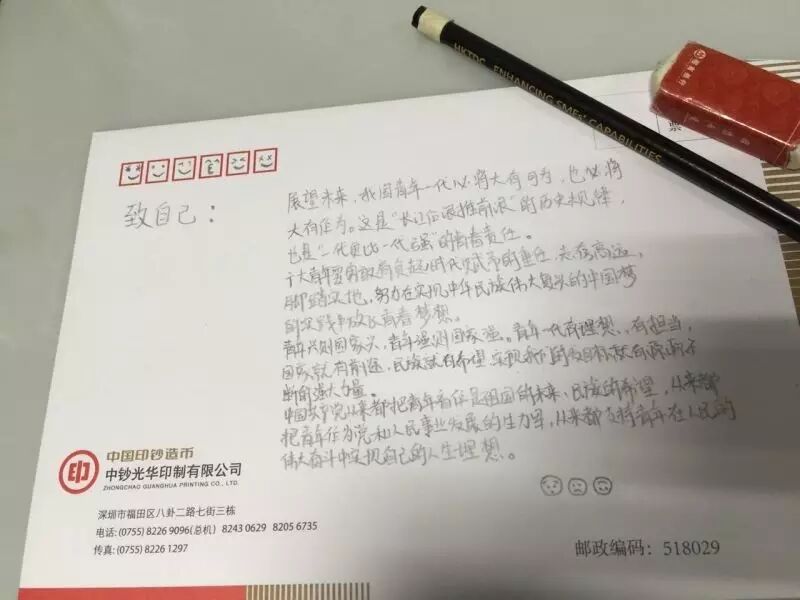 HKTDC ENHANCING SMEs' CAPABILITIES
票
致自己：
展望未来，我国青年一代必将大有可为，也必将
大有作为。这是“长江后浪推前浪”的历史规律，
也是“一代更比一代强”的青春责任。
广大青年要勇敢肩负起时代赋予的重任，志存高远，
脚踏实地，努力在实现中华民族伟大复兴的中国梦
的实践中放飞青春梦想。
青年兴则国家兴，青年强则国家强。青年一代有理想、有担当，
国家就有前途，民族就有希望，实现我们的发展目标就有源源不
断的强大力量。
中国共产党从来都把青年看作是祖国的未来、民族的希望，从来都
把青年作为党和人民事业发展的生力军，从来都支持青年在人民的
伟大奋斗中实现自己的人生理想。
印
中国印钞造币
中钞光华印制有限公司
ZHONGCHAO GUANGHUA PRINTING CO., LTD.
深圳市福田区八卦二路七街三栋
电话: (0755) 8226 9096(总机) 8243 0629 8205 6735
传真: (0755) 8226 1297
邮政编码：518029